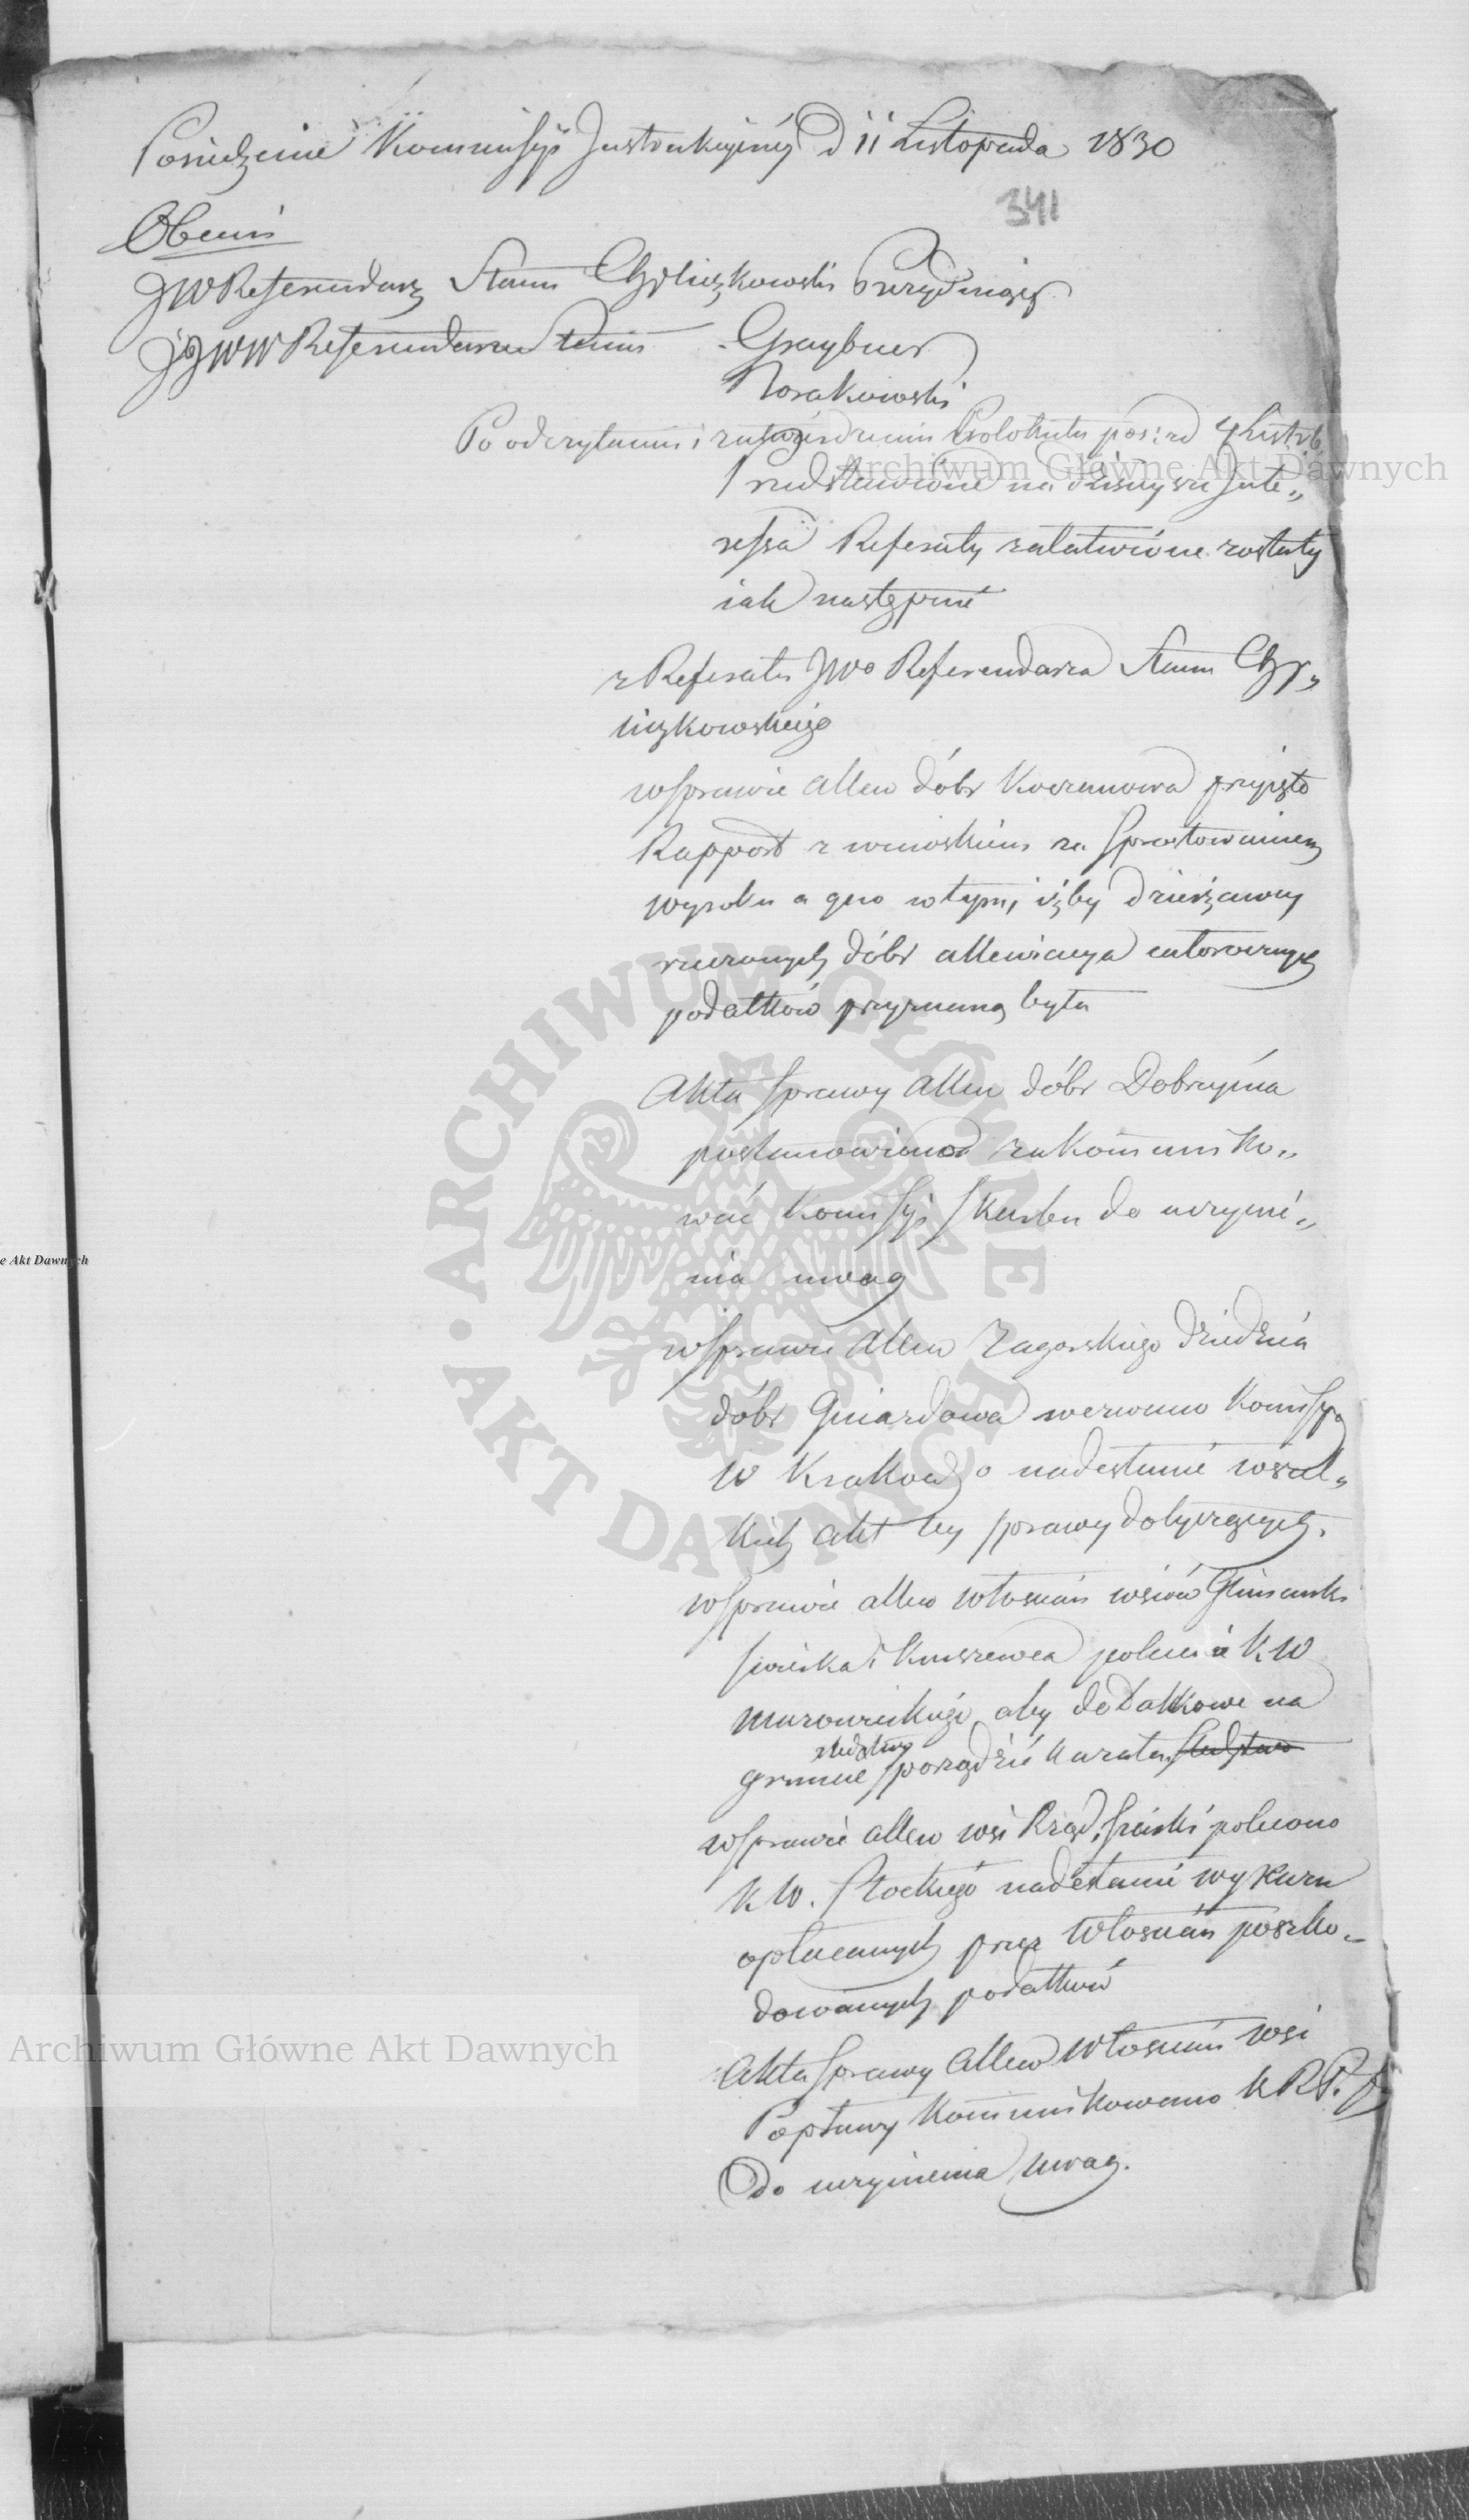 Posiedzenie Kommissyi Instrukcyiney D 11 Listopada 1830
341
Obecni
JW Referendarz Stanu Chyliczkowski Prezydujący
JJWW Referendarze Stanu Graybner
Norakowski
Po odczytaniu i zatwierdzeniu Protokułu posied 4 Listop
Przedstawione na dzisieyszej Inte„
ressa Referaty załatwione zostały
iak następuie
z Referatu JWo Referendarza Stanu Chy„
liczkowskiego
w sprawie allew dóbr Koczanowa przyięto
Rapport z wnioskiem za sprostowaniem
wyroku a quo w tym, iżby dzierżawcy
rzeczonych dóbr allewiacya całorocznych
podatków przyznaną była
Akta sprawy allew dóbr Dobrzynia
postanowiono zakommuniko„
wać Komissyi Skarbu do uczynie„
nia uwag
w sprawie allew Zagorskiego dziedzica
dóbr Gniazdowa wezwano Komissyą
W Krakow o nadesłanie wszel„
kich akt tey sprawy dotyczących.
w sprawie allew włościan wsiów
i Kuszewca polecenie K W
Mazowieckiego aby dodatkowe na
śledztwo
gruncie sporządzić kazała śledztwo
w sprawie allew wsi Rząd. polecono
K W. Płockiego nadesłanie wykazu
opłacanych przez włościan poszko„
dowanych podatków
Akta sprawy Allew włościan wsi
Popławy kommunikowano K R P. i S
Do uczynienia uwag.
Archiwum Główne Akt Dawnych
e Akt Dawnych
ARCHIWUM GŁÓWNE AKT DAWNYCH
Archiwum Główne Akt Dawnych